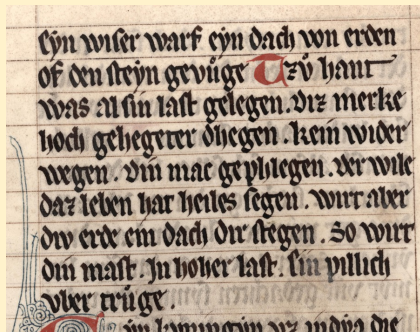 Eyn wiser warf eyn dach von erden
of den steyn gevuͦge Tzv̊ hant
was al sin last gelegen. Diz merke
hoch gehegeter dhegen. kein wider
wegen. Din mac gephlegen. Der wile
daz leben hat heiles segen. wirt aber
div erde ein dach dir stegen. So wirt
din mast. In hoher last. Sin pillich
vber truͦge.
Eyn kvningin vz india die